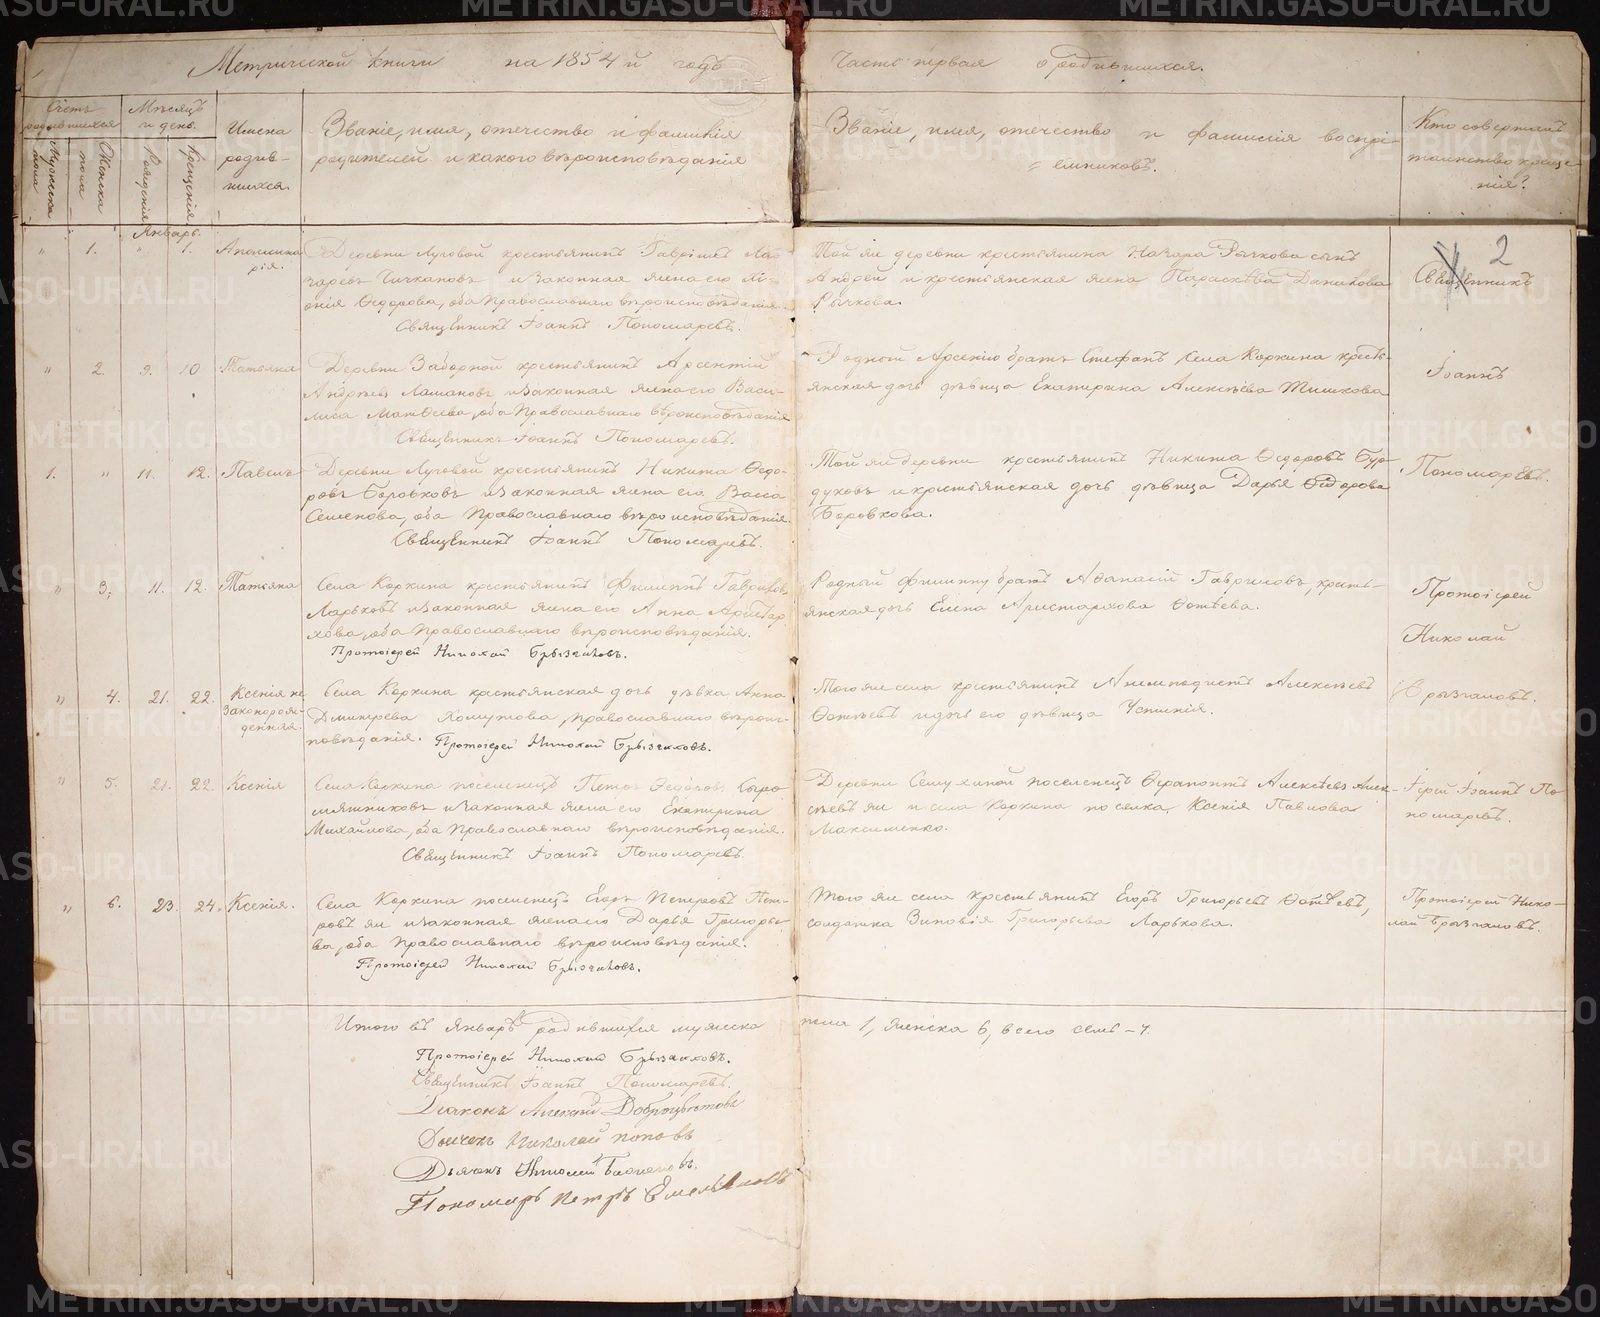 Метрической книги на 1854й годъ
Часть первая о родившихся.
Счетъ родившихся
Мужеска пола
Женска пола
Мѣсяцъ и день.
Рожденія
Крещенія
Имена
родив-
шихся.
Званіе, имя, отечество и фамилія
родителей и какого вѣроисповѣданія
Званіе, имя, отечество и фамилія воспрі-
емниковъ.
Кто совершалъ
таинство креще-
нія?
2
Январь.
" 1. " 1. Аполлина
рія.
Деревни Луговой крестьянинъ Гавріилъ Ла-
заревъ и законная жена его
Ѳедорова, оба Православнаго вѣроисповѣданія.
Священникъ Іоаннъ Пономаревъ.
Той же деревни крестьянина Назара Рычкова сынъ
Андрей и крестьянская жена Параскева Данилова
Рычкова.
Священникъ
" 2. 9. 10 Татьяна
Деревни Заборной крестьянинъ Арсентій
Андреевъ и законная жена его Васи-
лиса Матѳеева, оба Православнаго вѣроисповѣданія
Священникъ Іоаннъ Пономаревъ.
Родный Арсенію братъ Стефанъ, села Коркина кресть-
янская дочь дѣвица Екатерина Алексѣева Тишкова
Іоаннъ
1. " 11. 12. Павелъ
Деревни Луговой крестьянинъ Никита Ѳедо-
ровъ Боровковъ и законная жена его Васса
Семенова, оба Православнаго вѣроисповѣданія.
Священникъ Іоаннъ Пономаревъ.
Той же деревни крестьянинъ Никита Ѳедоровъ Бур-
дуковъ и крестьянская дочь дѣвица Дарья Ѳедорова
Боровкова.
Пономаревъ.
" 3. 11. 12. Татьяна
Села Коркина крестьянинъ Филиппъ Гавриловъ
Ларьковъ и законная жена его Анна Аристар
хова, оба Православнаго вѣроисповѣданія.
Протоіерей Николай Брызгаловъ.
Родный Филиппу братъ Аѳанасій Гавриловъ, кресть-
янская дочь Елена Аристархова Ѳотѣева.
Протоіерей
Николай
" 4. 21. 22. Ксенія не
законорож-
денная.
Села Коркина крестьянская дочь дѣвка Анна
Дмитрева Хомутова, православнаго вѣроис-
повѣданія. Протоіерей Николай Брызгаловъ.
Того же села крестьянинъ Анемподистъ Алексѣевъ
Ѳотѣевъ и дочь его дѣвица Успинія.
Брызгаловъ.
" 5. 21. 22. Ксенія
Села Коркина поселенецъ Петръ Ѳедоровъ Сыро
мятниковъ и законная жена его Екатерина
Михайлова, оба Православнаго вѣроисповѣданія.
Священникъ Іоаннъ Пономаревъ.
Деревни поселенецъ Ѳерапонтъ Алексѣевъ Алек-
сѣевъ же и села Коркина поселка, Ксенія Павлова
Максименко.
Іерей Іоаннъ По
номаревъ.
" 6. 23. 24. Ксенія.
Села Коркина поселенецъ Егоръ Петровъ Пет-
ровъ же и законная жена его Дарья Григорье-
ва, оба Православнаго вѣроисповѣданія.
Протоіерей Николай Брызгаловъ.
Того же села крестьянинъ Егоръ Григорьевъ Ѳотѣевъ,
солдатка Зиновія Григорьева Ларькова.
Протоіерей Нико-
лай Брызгаловъ.
Итого въ Январѣ родившихся мужеска
пола 1, женска 6, всего семь - 7.
Протоіерей Николай Брызгаловъ.
Священникъ Іоаннъ Пономаревъ.
Діаконъ Алексій Доброцвѣтовъ
Дьячекъ Николай Поповъ
Дьячекъ Николай
Пономарь Петръ Емельяновъ
METRIKI.GASO-URAL.RU